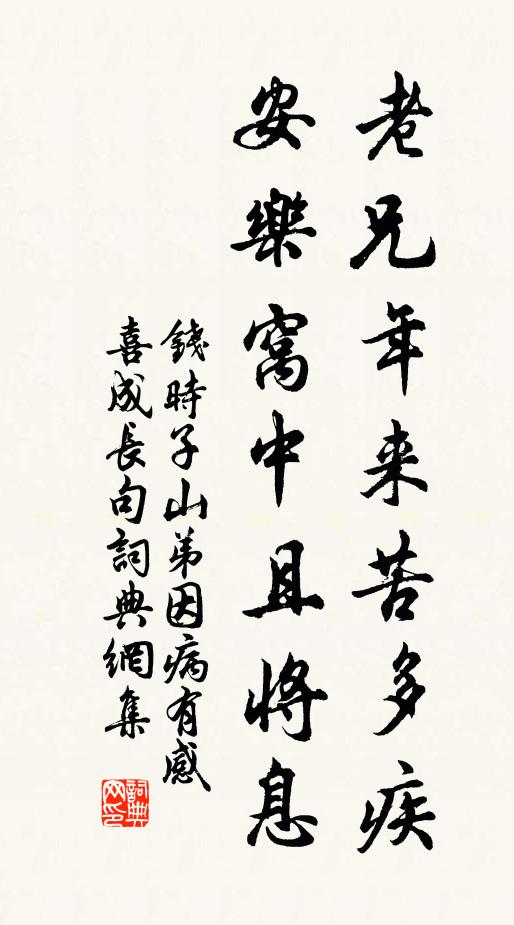 老兄年来苦多疾
安樂窩中且將息
錢時子山弟因病有感
喜成長句詞典網集
詞典
网印